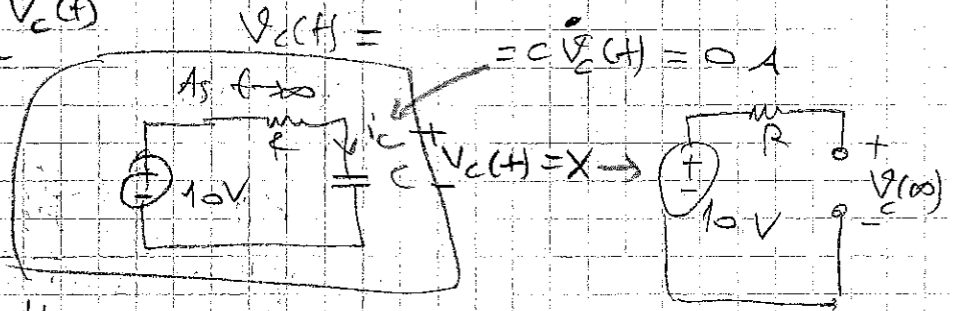 V_c(t)
V_c(t) =
= C v̇_c(t) = 0 A
As t→∞
R
i_c
+
C
-
V_c(t) = X →
+
-
10V
R
+
-
10 V
+
V_c(∞)
-